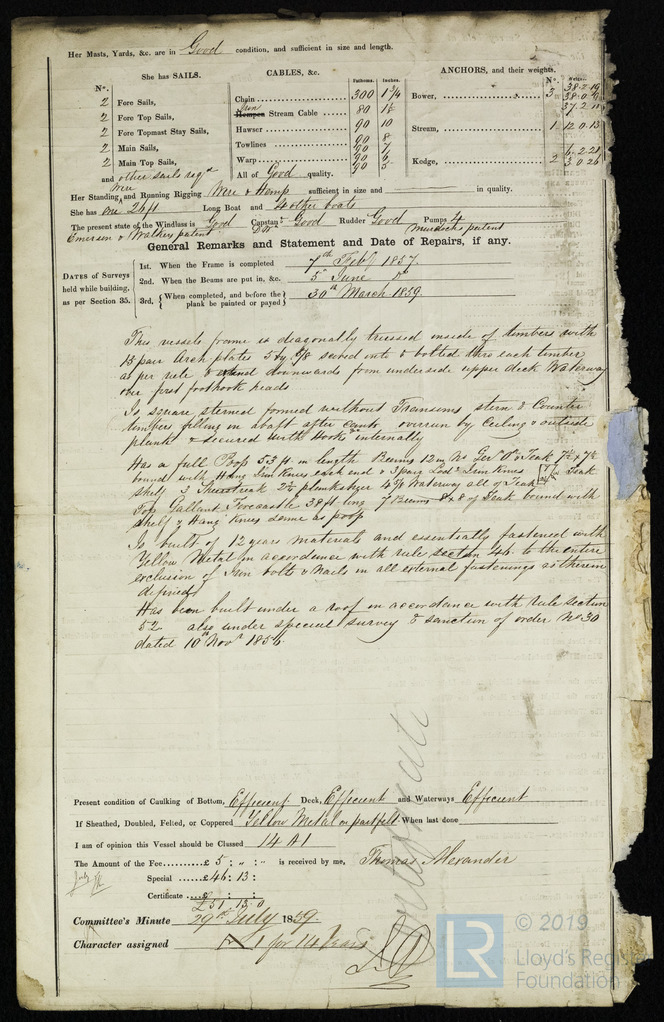 Her Masts, Yards, &c. are in Good condition, and sufficient in size and length.
She has SAILS.
No.
2 Fore Sails,
2 Fore Top Sails,
2 Fore Topmast Stay Sails,
2 Main Sails,
2 Main Top Sails,
and other sails reqd
CABLES, &c.
Fathoms. Inches.
Chain 300 1 3/4
Iron
Hempen Stream Cable 80
Hawser 90 10
Towlines 90 8
90 7
Warp 90 6
90 5
All of Good quality.
ANCHORS, and their weights.
No. Weight.
Bower, 3 38.2.19
38.0.
37.2.
Stream, 1 12.0.13
Kedge, 2 6.2.21
3.0.26
Her Standing and Running Rigging Wire & Hemp sufficient in size and in quality.
She has one 26ft Long Boat and 4 other boats
The present state of the Windlass is Good Capstan Good Rudder Good Pumps 4
Emerson & Walkers patent Do Murdochs patent
General Remarks and Statement and Date of Repairs, if any.
DATES of Surveys held while building, as per Section 35.
1st. When the Frame is completed 7th Feby 1857.
2nd. When the Beams are put in, &c. 5th June Do
3rd. { When completed, and before the plank be painted or payed } 30th March 1859.
This vessels frame is diagonally trussed inside of timbers with
13 pair Arch plates 5 by 5/8 scored into & bolted thro each timber
as per rule & extend downwards from underside upper deck Waterway
over first foothook heads
Is square sterned formed without Transoms stern & Counter
timbers filling in abaft after cants overrun by Ceiling & outside
plank & secured with Hooks internally
Has a full Poop 53 ft in length Beams 12 in No Teak 7½ x 7½
bound with Hang Iron Knees each end & 3 pairs Lodg Iron Knees Teak
shelf 3 2½ planksheer 4¾ Waterway all of Teak
Top Gallant Forecastle 38 ft long 7 Beams 8 x 8 of Teak bound with
shelf & Hang Knees same as poop
Is built of 12 years materials and essentially fastened with
Yellow Metal in accordance with rule section 46 to the entire
exclusion of Iron bolts & Nails in all external fastenings as therein
defined
Has been built under a roof in accordance with rule section
52 also under special survey & sanction of order No 30
dated 10th Novr 1856
Present condition of Caulking of Bottom, Efficient Deck, Efficient and Waterways Efficient
If Sheathed, Doubled, Felted, or Coppered Yellow Metal on felt When last done
I am of opinion this Vessel should be Classed 14 A1
The Amount of the Fee £ 5 : „ : „ is received by me, Thomas Alexander
Special £46 : 13 :
Certificate
£51 . 13 . 0
Committee's Minute 29th July 1859.
Character assigned A 1 for 14 Years
LR © 2019
Lloyd's Register
Foundation